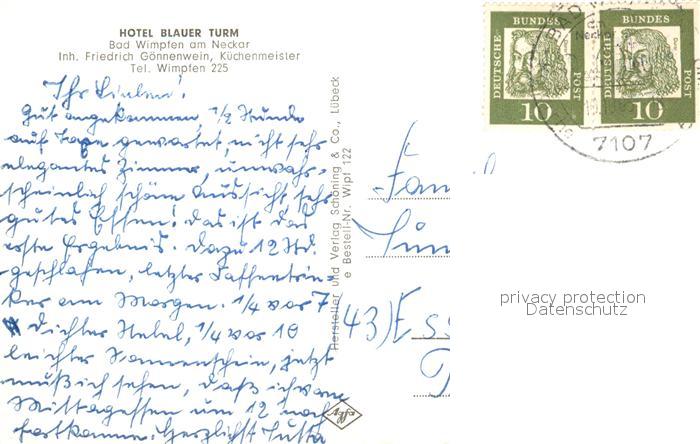 HOTEL BLAUER TURM
Bad Wimpfen am Neckar
Inh. Friedrich Gönnenwein, Küchenmeister
Tel. Wimpfen 225
Ihr Lieben!
Gut angekommen, 1/2 Stunde
auf Taxe gewartet, nicht sehr
elegantes Zimmer, unwahr-
scheinlich schöne Aussicht, sehr
gutes Essen! das ist das
erste Ergebnis. Dazu 12 Std.
geschlafen, letzter Kaffeetrin-
ker am Morgen. 1/4 vor 7
dichter Nebel, 1/4 vor 10
leichter Sonnenschein, jetzt
muß ich sehen, daß ich vom
Mittagessen um 12 noch
fortkomme. Herzlichst Jutta
Hersteller und Verlag Schöning & Co., Lübeck
Bestell-Nr. Wipf 122
Agfa
DEUTSCHE BUNDES POST
10
DEUTSCHE BUNDES POST
10
7107
Fam
43) Ess
privacy protection
Datenschutz